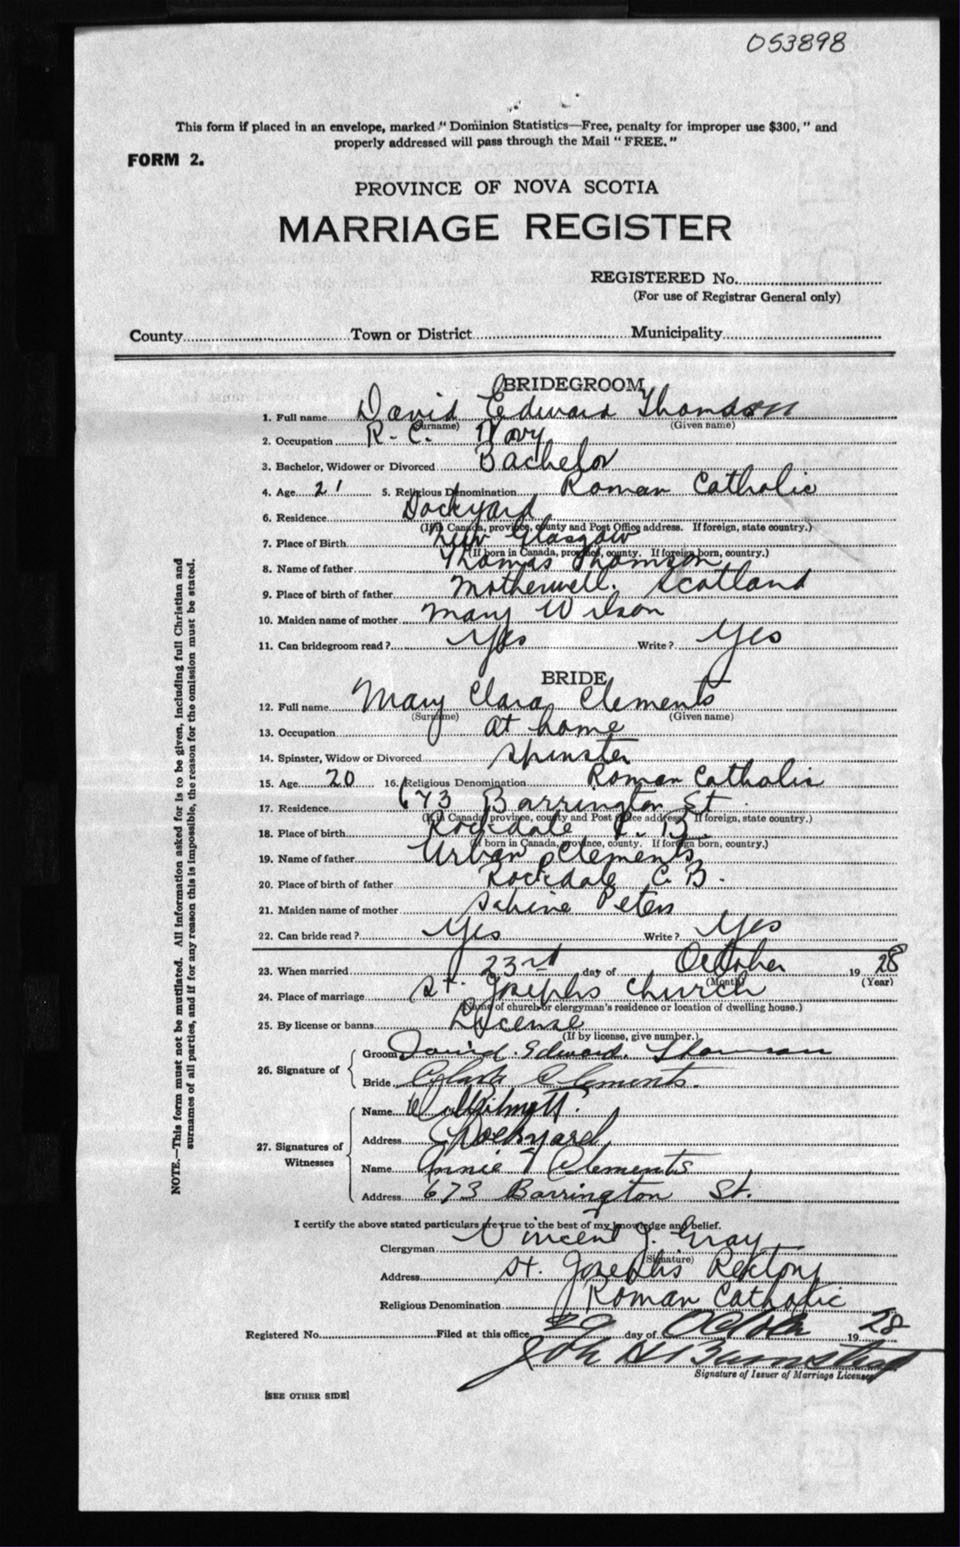 053898
This form if placed in an envelope, marked "Dominion Statistics—Free, penalty for improper use $300," and
properly addressed will pass through the Mail "FREE."
FORM 2.
PROVINCE OF NOVA SCOTIA
MARRIAGE REGISTER
REGISTERED No.
(For use of Registrar General only)
County Town or District Municipality
BRIDEGROOM
1. Full name David Edward Thomson
(Surname) (Given name)
2. Occupation R.C. Navy
3. Bachelor, Widower or Divorced Bachelor
4. Age 21 5. Religious Denomination Roman Catholic
6. Residence Dockyard
(If in Canada, province, county and Post Office address. If foreign, state country.)
7. Place of Birth New Glasgow
(If born in Canada, province, county. If foreign born, country.)
8. Name of father Thomas Thomson
9. Place of birth of father Motherwell, Scotland
10. Maiden name of mother Mary Wilson
11. Can bridegroom read? Yes Write? Yes
BRIDE
12. Full name Mary Clara Clements
(Surname) (Given name)
13. Occupation at home
14. Spinster, Widow or Divorced Spinster
15. Age 20 16. Religious Denomination Roman Catholic
17. Residence 673 Barrington St.
(If in Canada, province, county and Post Office address. If foreign, state country.)
18. Place of birth Rockdale C.B.
(If born in Canada, province, county. If foreign born, country.)
19. Name of father Urban Clements
20. Place of birth of father Rockdale C.B.
21. Maiden name of mother Sabine Peters
22. Can bride read? Yes Write? Yes
23. When married 23rd day of October 1928
(Month) (Year)
24. Place of marriage St. Josephs Church
(Name of church or clergyman's residence or location of dwelling house.)
25. By license or banns License
(If by license, give number.)
26. Signature of
Groom David Edward Thomson
Bride Clara Clements.
27. Signatures of Witnesses
Name
Address Dockyard
Name Annie Clements
Address 673 Barrington St.
I certify the above stated particulars are true to the best of my knowledge and belief.
Clergyman Vincent J. Gray
(Signature)
Address St. Joseph's Rectory
Religious Denomination Roman Catholic
Registered No. Filed at this office day of October 1928
Signature of Issuer of Marriage Licenses
[SEE OTHER SIDE]
NOTE.—This form must not be mutilated. All information asked for is to be given, including full Christian and
surnames of all parties, and if for any reason this is impossible, the reason for the omission must be stated.